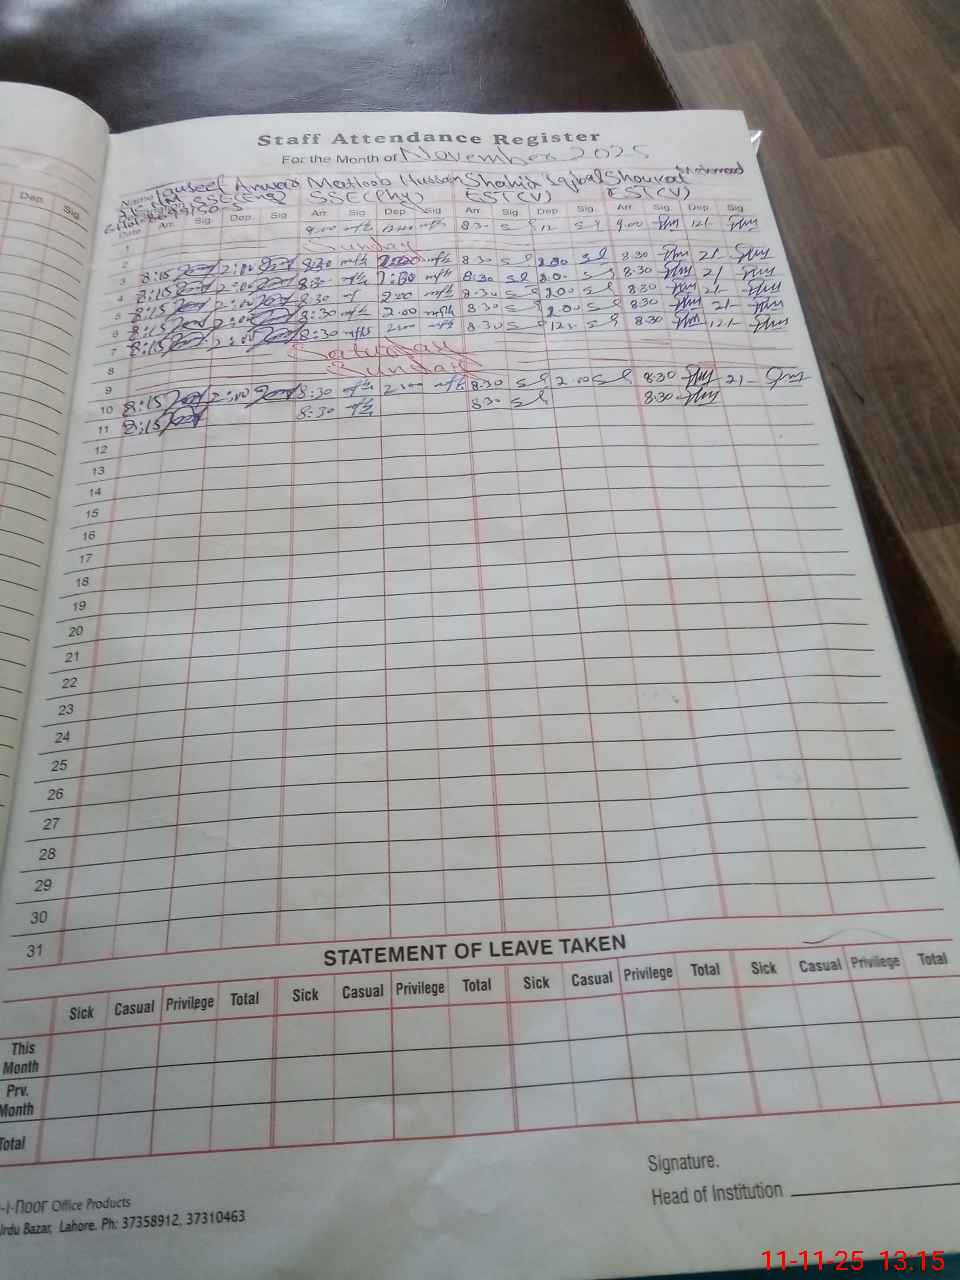 Dep. Sig.
Staff Attendance Register
For the Month of November 2025
Tauseef Anwar Matloob Hussain Shahid Iqbal Shouvat Mehmood
SSE(Eng) SSE(Phy) EST(V) EST(V)
Date Arr. Sig. Dep. Sig. Arr. Sig. Dep. Sig. Arr. Sig. Dep. Sig. Arr. Sig. Dep. Sig.
1 9.00 12.00 8.30 12 9.00 12/-
2 Sunday
3 8:15 2:00 8:30 2:00 8.30 2.00 8.30 2/-
4 8:15 2:00 8:30 8:30 2.0 8.30 2/
5 8:15 2:00 8:30 2:00 8.30 2.00 8.30 2/-
6 8:15 2:00 8:30 2.00 8.30 2.00 8.30 2/-
7 8:15 8:30 8.30 12 8.30 12/-
8 Saturday
9 Sunday
10 8:15 2:00 8:30 2:00 8.30 2.00 8.30 2/-
11 8:15 8:30 8.30 8.30
12
13
14
15
16
17
18
19
20
21
22
23
24
25
26
27
28
29
30
31
STATEMENT OF LEAVE TAKEN
Sick Casual Privilege Total Sick Casual Privilege Total Sick Casual Privilege Total Sick Casual Privilege Total
This Month
Prv. Month
Total
Signature.
Head of Institution
-i-noor Office Products
Urdu Bazar, Lahore. Ph: 37358912, 37310463
11-11-25 13:15